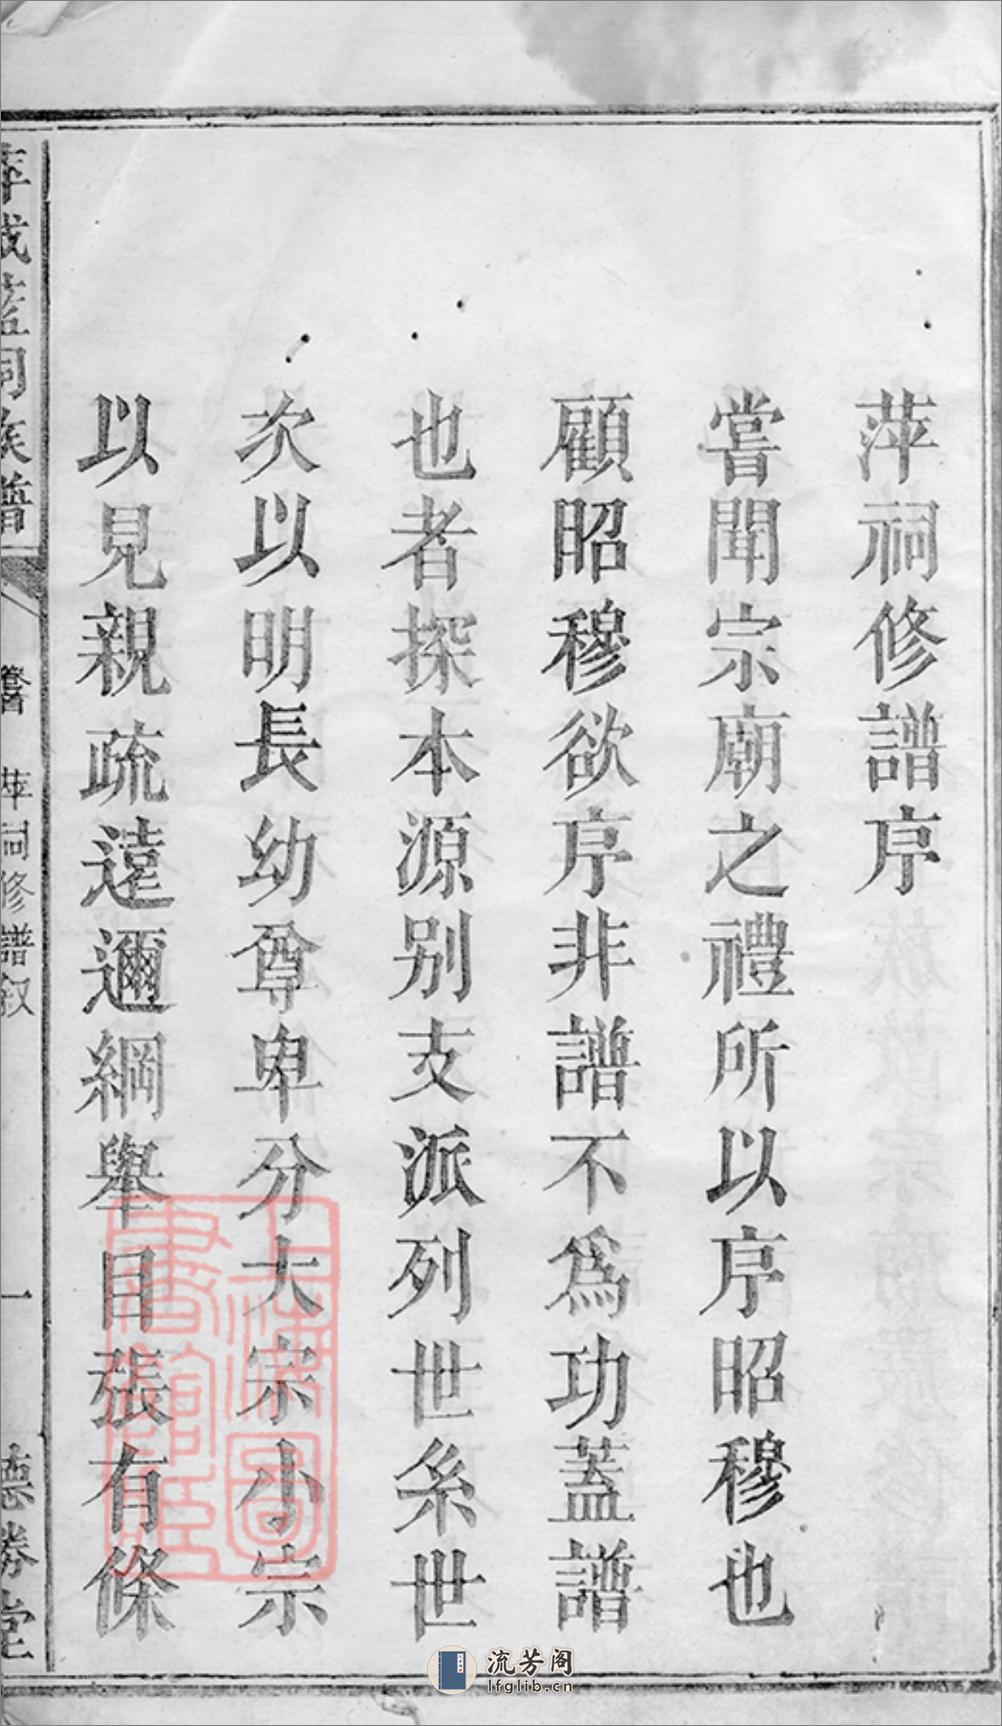 萍祠修譜序
嘗聞宗廟之禮所以序昭穆也
顧昭穆欲序非譜不爲功蓋譜
也者探本源別支派列世系世
次以明長幼尊卑分大宗小宗
以見親疏遠邇綱舉目張有條
祠族譜
萍祠修譜叙
一
德勝堂
上海圖書館藏
流芳阁
lfglib.cn